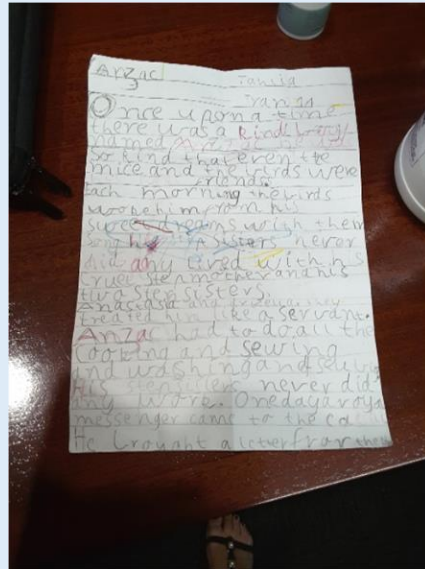 Anzac Tanija
Once upon a time
there was a kind
named
so kind that even the
mice and the birds were
friends.
Each morning the birds
woke him from his
sweet dreams with their
song sisters never
did any lived with his
cruel stepmother and his
two step sisters.
treated him like a servant.
Anzac had to do all the
cooking and sewing
and washing and
his never did
any work. One day a royal
messenger came to the
He brought a letter from the